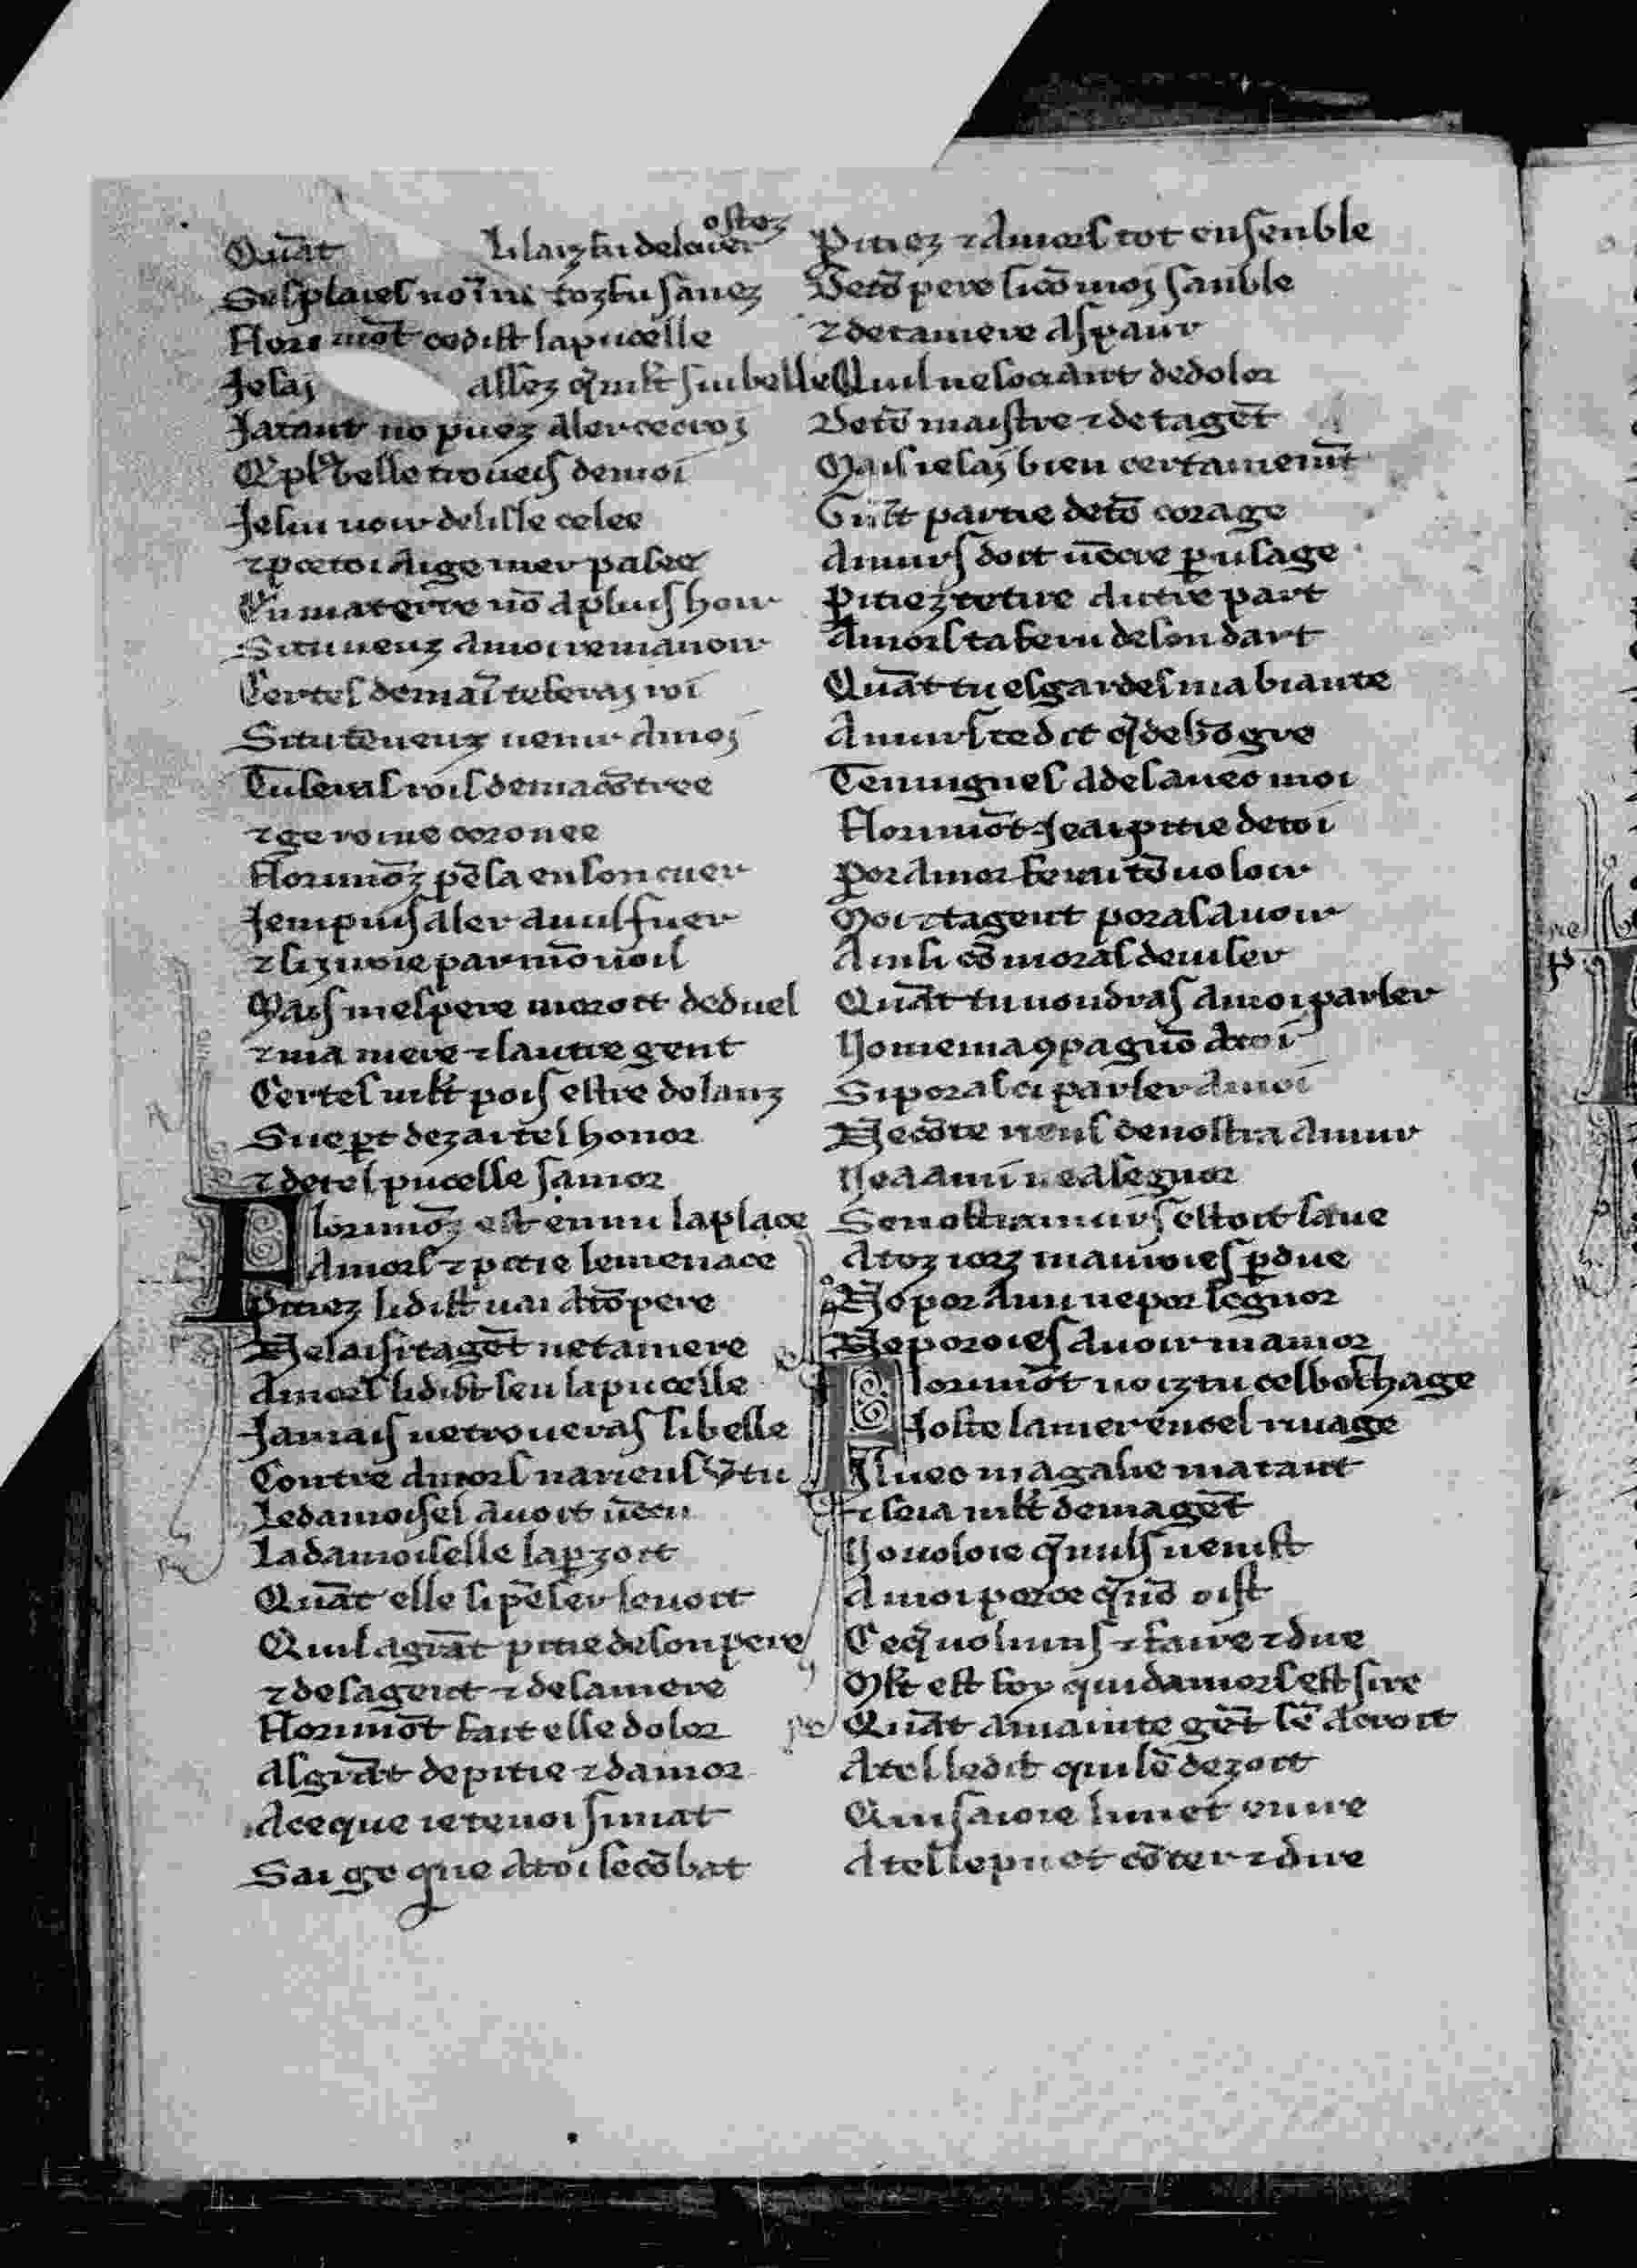 Quāt li laiz fu de lo uer ostez
Ses plaies uoīt toz fu sanez
Florimōt ce dist la pucelle
Je sai assez q̄ mlt sui belle
Ja tant no puez aler ce croi
Q̄ pl9 belle troueis de moi
Je sui uoir de lisle celee
⁊ por toi ai ge mer passee
En ma terre nō a pluis hoir
Si tu ueuz a moi remanoir
Certes demaī te ferai roi
Si tu tē ueuz uenir a moi
Tu seras rois de ma cōtree
⁊ ge roine coronee
Florimōz pēsa en son cuer
Je m puis aler a nuls fuer
⁊ si ziroie par mō uoil
Mais mes pere morott de duel
⁊ ma mere ⁊ lautre gent
Certes mlt pois estre dolanz
Sue ꝑt dezai tel honor
⁊ de tel pucelle samor
Florimōz est en mi la place
Amors ⁊ pitie le menace
Pitiez li dist uai a tō pere
Ne laisi ta gēt ne ta mere
Amors li dist sen la pucelle
Jamais ne troueras si belle
Contre amors naries u̾tu
Le damoisel auoit uēcu
La damoiselle laꝑzoit
Quāt elle li pēser leuoit
Quil a grāt pitie de son pere
⁊ de sa gent ⁊ de sa mere
Florimōt fait elle dolor
As grāt de pitie ⁊ damor
A ce que ie te uoi si mat
Sai ge que a toi se cōbat
Pitiez ⁊ amors tot ensenble
De tō pere si cō moi sanble
⁊ de ta mere as paur
Quil ne sociant de dolor
De tō maistre ⁊ de ta gēt
Mais ie sai bien certainemīt
Gnlt partie de tō corage
Amurs doit uēcre ꝑ usage
Pitiez te tire autre part
Amors ta feru de son dart
Quāt tu esgardes ma biaute
Amurs te dit q̄ de bō gre
Ten uignes ades aueo moi
Florimōt Je ai pitie de toi
Por amor ferai tō uoloir
Moi ⁊ ta gent poras auoir
Ainsi cō moras deuiser
Quāt tu uoudras a moi parler
No mema ꝯpagnō a toi
Si poras ci parler a moi
Ne cōte nens de nostra amur
Ne a ami ne a segnor
Se nostra murs estoit saue
A toz iorz mauroies ꝑdue
No por ami ne por segnor
Ne poroies auoir mamor
Florimōt uoiz tu cel boschage
Joste la mer en oel riuage
Iluec ma galie matant
⁊ seia mlt de ma gēt
No uoloie q̄ nuls uenist
A moi por ce q̄ nō oist
Ce q̄ uolimis ⁊ faire ⁊ dire
Mlt est foy qui damors est sire
Quāt a mainte gēt sē acroit
A tel le dit qui lē dezoit
Qui sa ioie li met en ire
A tel le puet cōter ⁊ dire